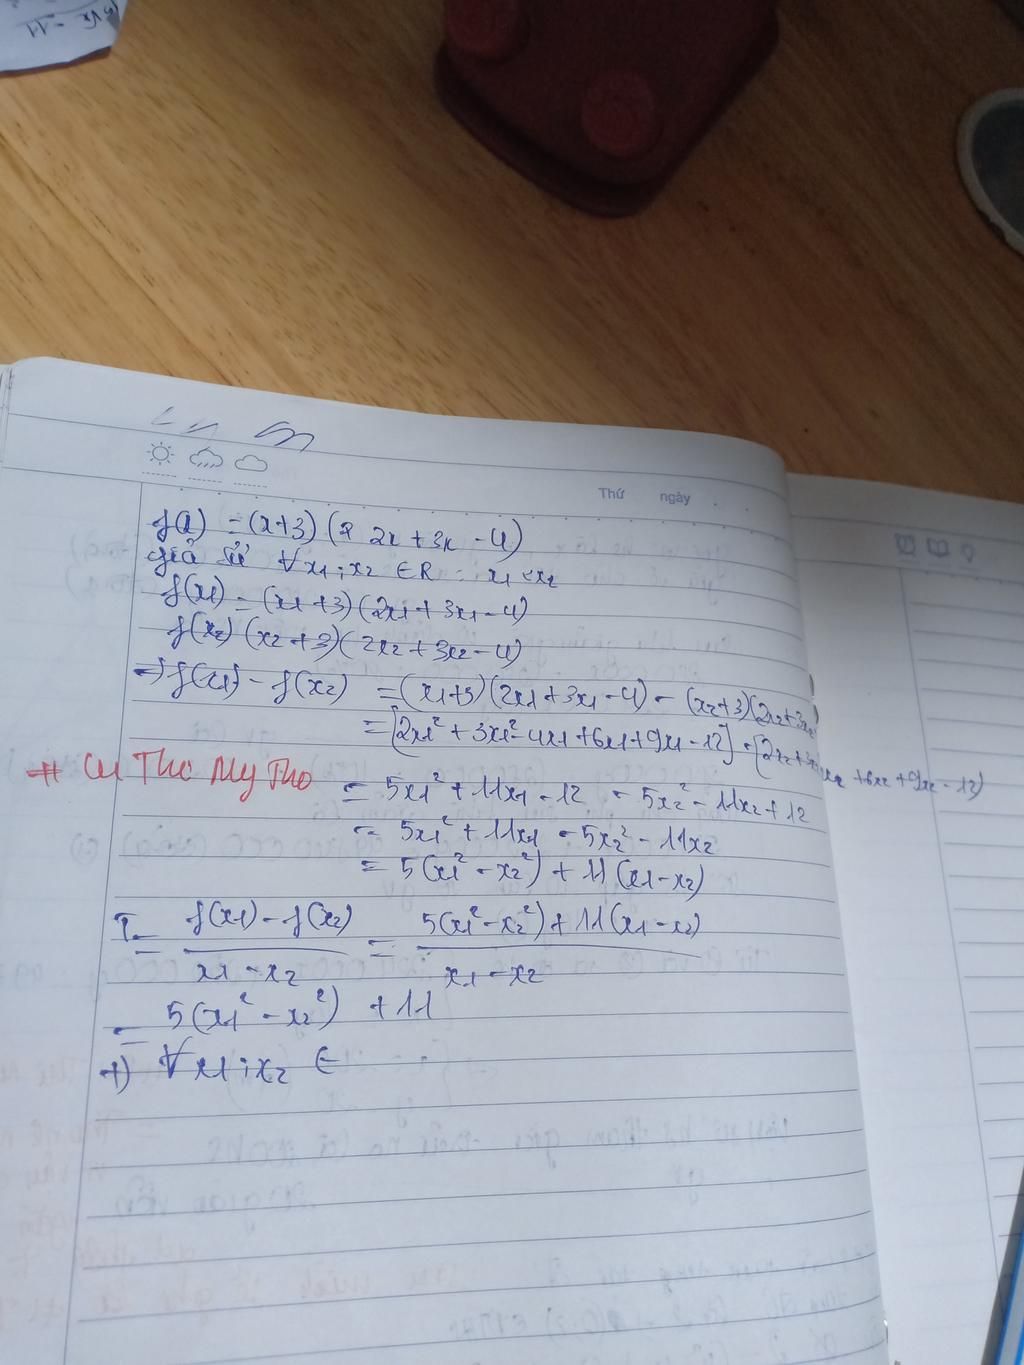 Thứ ngày
f(x) = (x+3) (2x + 3x - 4)
giả sử ∀x1; x2 ∈ R : x1 < x2
f(x1) = (x1+3) (2x1 + 3x1 - 4)
f(x2) (x2+3) (2x2 + 3x2 - 4)
=> f(x1) - f(x2) = (x1+3) (2x1 + 3x1 - 4) - (x2+3) (2x2 + 3x2
= [2x1² + 3x1² - 4x1 + 6x1 + 9x1 - 12] - [2x2 + 3x2 + 6x2 + 9x2 - 12)
# Cu Tho My Tho
= 5x1² + 11x1 - 12 - 5x2² - 11x2 + 12
= 5x1² + 11x1 - 5x2² - 11x2
= 5(x1² - x2²) + 11(x1 - x2)
T = f(x1) - f(x2) / x1 - x2 = 5(x1² - x2²) + 11(x1 - x2) / x1 - x2
= 5(x1² - x2²) + 11
+) ∀x1; x2 ∈